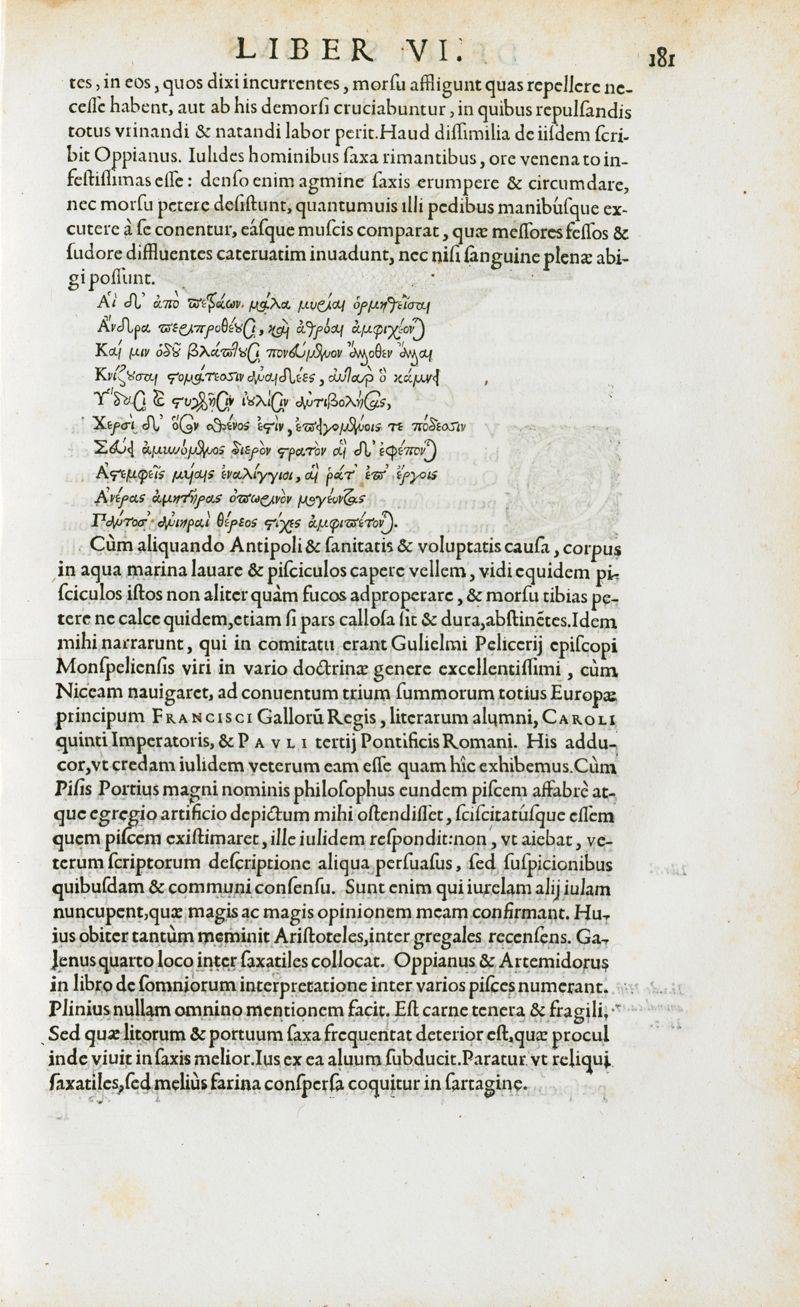 LIBER VI.
181
tes, in eos, quos dixi incurrentes, morſu affligunt quas repellere ne-
ceſſe habent, aut ab his demorſi cruciabuntur, in quibus repulſandis
totus vrinandi & natandi labor perit. Haud diſſimilia de iiſdem ſcri-
bit Oppianus. Iulides hominibus ſaxa rimantibus, ore venenato in-
feſtiſſimas eſſe: denſo enim agmine ſaxis erumpere & circumdare,
nec morſu petere deſiſtunt, quantumuis illi pedibus manibúſque ex-
cutere à ſe conentur, eáſque muſcis comparat, quæ meſſores feſſos &
ſudore diffluentes cateruatim inuadunt, nec niſi ſanguine plenæ abi-
gi poſſunt.
Αἱ δ' ἀπὸ πετράων μάλα μυρίαι ὁρμηθεῖσαι
Ἄνδρα περιπροθέουσι, καὶ ἀθρόαι ἀμφιχέονται
Καί μιν ὁδοῦ βλάπτουσι πονεύμενον ἄλλοθεν ἄλλαι
Κνίζουσαι στομάτεσσιν ἀναιδέες, αὐτὰρ ὁ κάμνει
Ὕδασι καὶ στυγερῇσιν ἰουλίσιν ἀντιβολήσας,
Χερσὶ δ' ὅσον σθένος ἐστὶν, ἐπειγομένοις τε πόδεσσιν
Σεύει ἀμυνόμενος διερὸν στρατὸν αἱ δ' ἐφέπονται
Ἀστεμφεῖς μυίαις ἐναλίγγιοι, αἵ ῥά τ' ἐπ' ἔργοις
Ἀνέρας ἀμητῆρας ὀπωρινὸν μογέοντας
Πάντοσ' ἀνιηραὶ θέρεος στίχες ἀμφιπέτονται.
Cùm aliquando Antipoli & ſanitatis & voluptatis cauſa, corpus
in aqua marina lauare & piſciculos capere vellem, vidi equidem pi-
ſciculos iſtos non aliter quàm fucos adproperare, & morſu tibias pe-
tere ne calce quidem, etiam ſi pars calloſa ſit & dura, abſtinētes. Idem
mihi narrarunt, qui in comitatu erant Gulielmi Pelicerij epiſcopi
Monſpelienſis viri in vario doctrinæ genere excellentiſſimi, cùm
Niceam nauigaret, ad conuentum trium ſummorum totius Europæ
principum FRANCISCI Gallorū Regis, literarum alumni, CAROLI
quinti Imperatoris, & PAVLI tertij Pontificis Romani. His addu-
cor, vt credam iulidem veterum eam eſſe quam hîc exhibemus. Cùm
Piſis Portius magni nominis philoſophus eundem piſcem affabrè at-
que egregio artificio depictum mihi oſtendiſſet, ſciſcitatúſque eſſem
quem piſcem exiſtimaret, ille iulidem reſpondit: non, vt aiebat, ve-
terum ſcriptorum deſcriptione aliqua perſuaſus, ſed ſuſpicionibus
quibuſdam & communi conſenſu. Sunt enim qui iurelam alij iulam
nuncupent, quæ magis ac magis opinionem meam confirmant. Hu-
ius obiter tantùm meminit Ariſtoteles, inter gregales recenſens. Ga-
lenus quarto loco inter ſaxatiles collocat. Oppianus & Artemidorus
in libro de ſomniorum interpretatione inter varios piſces numerant.
Plinius nullam omnino mentionem facit. Eſt carne tenera & fragili.
Sed quæ litorum & portuum ſaxa frequentat deterior eſt, quæ procul
inde viuit in ſaxis melior. Ius ex ea aluum ſubducit. Paratur vt reliqui
ſaxatiles, ſed meliùs farina conſperſa coquitur in ſartagine.